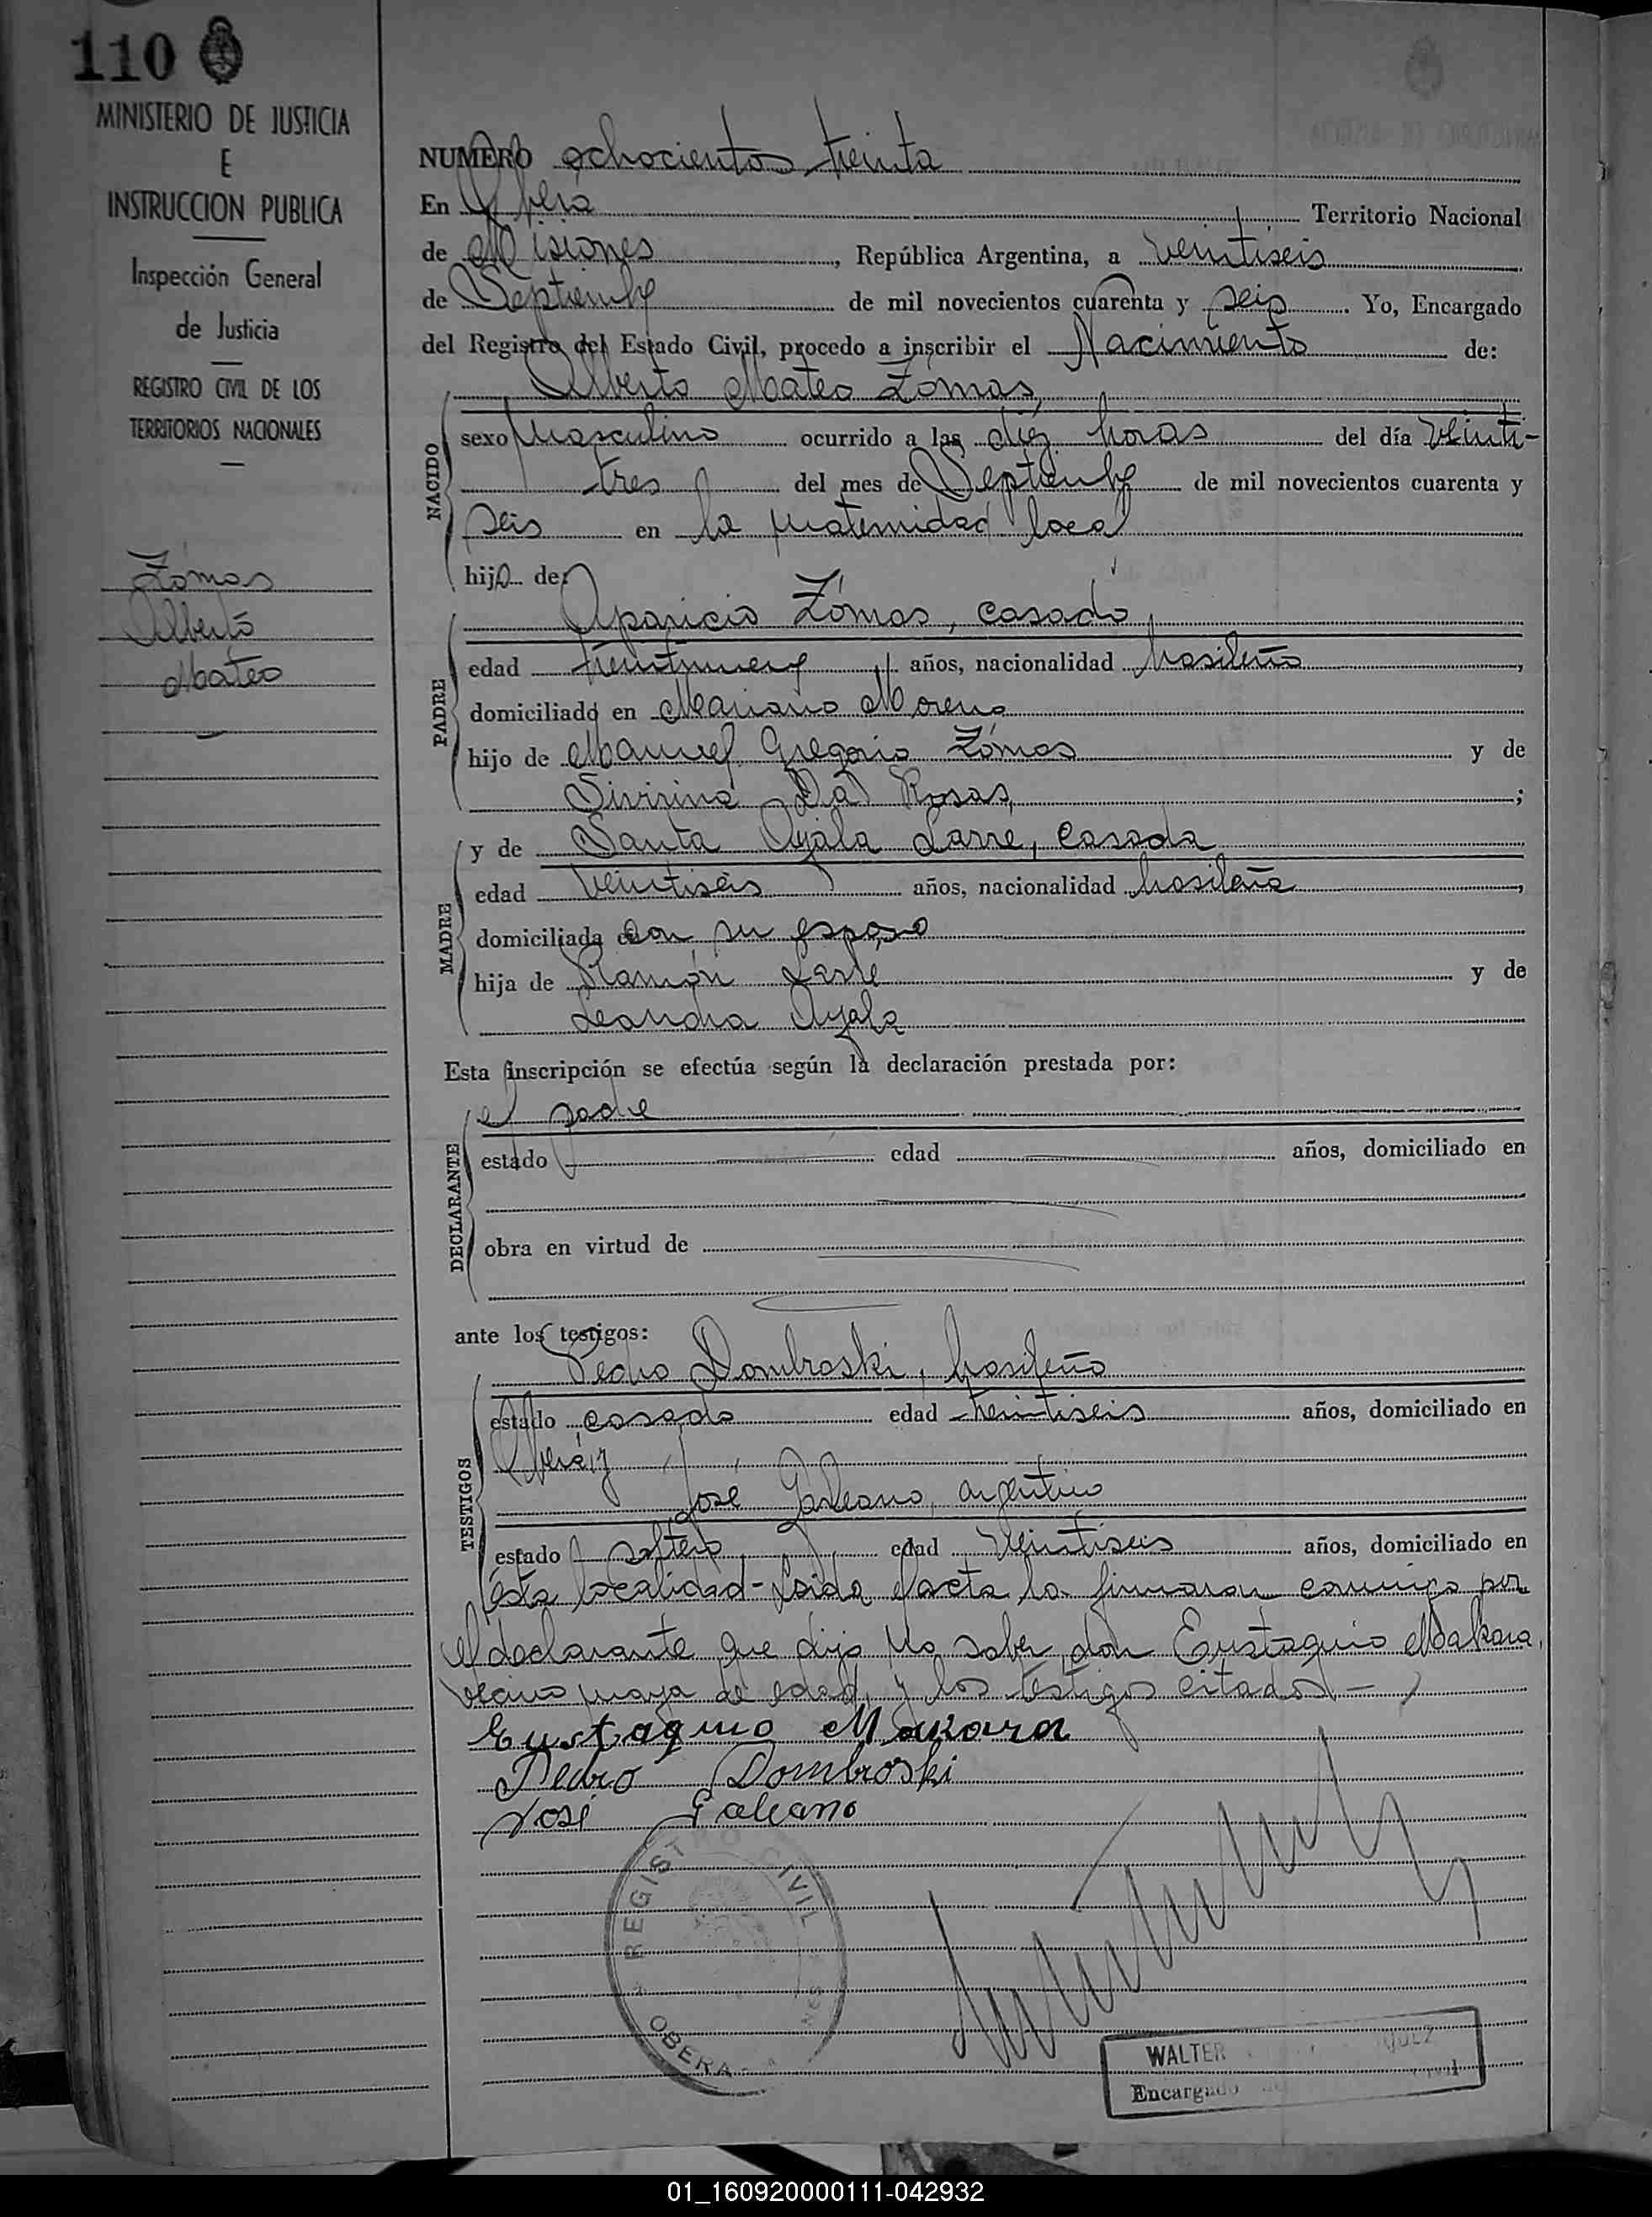 110
MINISTERIO DE JUSTICIA
E
INSTRUCCION PUBLICA
Inspección General
de Justicia
REGISTRO CIVIL DE LOS
TERRITORIOS NACIONALES
Zómas
Alberto
Mateo
NUMERO ochocientos treinta
En Oberá Territorio Nacional
de Misiones, República Argentina, a veintiseis
de Septiembre de mil novecientos cuarenta y seis. Yo, Encargado
del Registro del Estado Civil, procedo a inscribir el Nacimiento de:
Alberto Mateo Zomas,
NACIDO
sexo Masculino ocurrido a las diez horas del día veinti-
tres del mes de Septiembre de mil novecientos cuarenta y
seis en la maternidad local
hijo de:
PADRE
Aparicio Zómas, casado,
edad treintinueve años, nacionalidad brasileño,
domiciliado en Mariano Moreno
hijo de Manuel Gregorio Zómas y de
Sivirina Da Rosas,;
MADRE
y de Santa Ayala Larre, casada
edad veintiseis años, nacionalidad brasileña,
domiciliada con su esposo
hija de Ramón y de
Leandra Ayala
Esta inscripción se efectúa según la declaración prestada por:
DECLARANTE
el padre
estado edad años, domiciliado en
obra en virtud de
ante los testigos:
TESTIGOS
Pedro Dombroski, brasileño
estado casado edad treintiseis años, domiciliado en
Oberá, y
José Galeano, argentino
estado soltero edad veintiseis años, domiciliado en
ésta localidad- Leida el acta la firmaran conmigo por
el declarante que dijo no saber, don Eustaquio Makara,
vecino mayor de edad, y los testigos citados -
Eustaquio Makara
Pedro Dombroski
José Galeano
REGISTRO CIVIL
OBERA
WALTER
Encargado
01_160920000111-042932